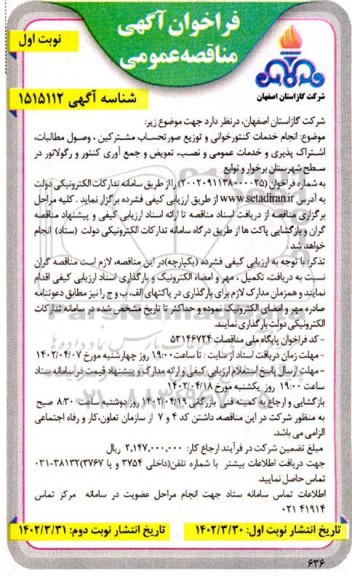 فراخوان آگهی
مناقصه عمومی
نوبت اول
شرکت گاز استان اصفهان
شناسه آگهی ۱۵۱۵۱۱۲
شرکت گاز استان اصفهان، درنظر دارد جهت موضوع زیر:
موضوع: انجام خدمات کنتورخوانی و توزیع صورتحساب مشترکین ، وصول مطالبات،
اشتراک پذیری و خدمات عمومی و نصب، تعویض و جمع آوری کنتور و رگولاتور در
سطح شهرستان برخوار و توابع
به شماره فراخوان (۲۰۰۲۰۹۱۱۳۸۰۰۰۰۳۵) را از طریق سامانه تدارکات الکترونیکی دولت
به آدرس www.setadiran.ir از طریق ارزیابی کیفی فشرده برگزار نماید . کلیه مراحل
برگزاری مناقصه از دریافت اسناد مناقصه تا ارائه اسناد ارزیابی کیفی و پیشنهاد مناقصه
گران و بازگشایی پاکت ها از طریق درگاه سامانه تدارکات الکترونیکی دولت (ستاد) انجام
خواهد شد.
تذکر: با توجه به ارزیابی کیفی فشرده (یکپارچه) در این مناقصه، لازم است مناقصه گران
نسبت به دریافت، تکمیل ، مهر و امضاء الکترونیک و بارگذاری اسناد ارزیابی کیفی اقدام
نمایند و همزمان مدارک لازم برای بارگذاری در پاکتهای الف، ب و ج را نیز مطابق دعوتنامه
صادره مهر و امضای الکترونیک نموده و حداکثر تا تاریخ مشخص شده در سامانه تدارکات
الکترونیکی دولت بارگذاری نمایند.
- کد فراخوان پایگاه ملی مناقصات ۵۳۱۴۶۷۲۴
- مهلت زمان دریافت اسناد از سایت : تا ساعت ۱۹:۰۰ روز چهارشنبه مورخ ۱۴۰۲/۰۴/۰۷
- مهلت ارسال پاسخ استعلام ارزیابی کیفی و ارائه مدارک و پیشنهاد قیمت در سامانه ستاد
ساعت ۱۹:۰۰ روز یکشنبه مورخ ۱۴۰۲/۰۴/۱۸
بازگشایی و ارجاع به کمیته فنی بازرگانی ۱۴۰۲/۰۴/۱۹ روز دوشنبه ساعت ۸:۳۰ صبح
به منظور شرکت در این مناقصه، داشتن کد ۴ و ۷ از سازمان تعاون، کار و رفاه اجتماعی
الزامی می باشد.
مبلغ تضمین شرکت در فرآیند ارجاع کار: ۲,۱۴۷,۰۰۰,۰۰۰ ریال
جهت دریافت اطلاعات بیشتر با شماره تلفن (داخلی ۳۷۵۴ و یا ۳۷۶۷) ۳۸۱۳۲-۰۳۱
تماس حاصل نمایید.
اطلاعات تماس سامانه ستاد جهت انجام مراحل عضویت در سامانه مرکز تماس
۰۲۱ ۴۱۹۱۴
تاریخ انتشار نوبت اول: ۱۴۰۲/۳/۳۰
تاریخ انتشار نوبت دوم: ۱۴۰۲/۳/۳۱
۶۳۶